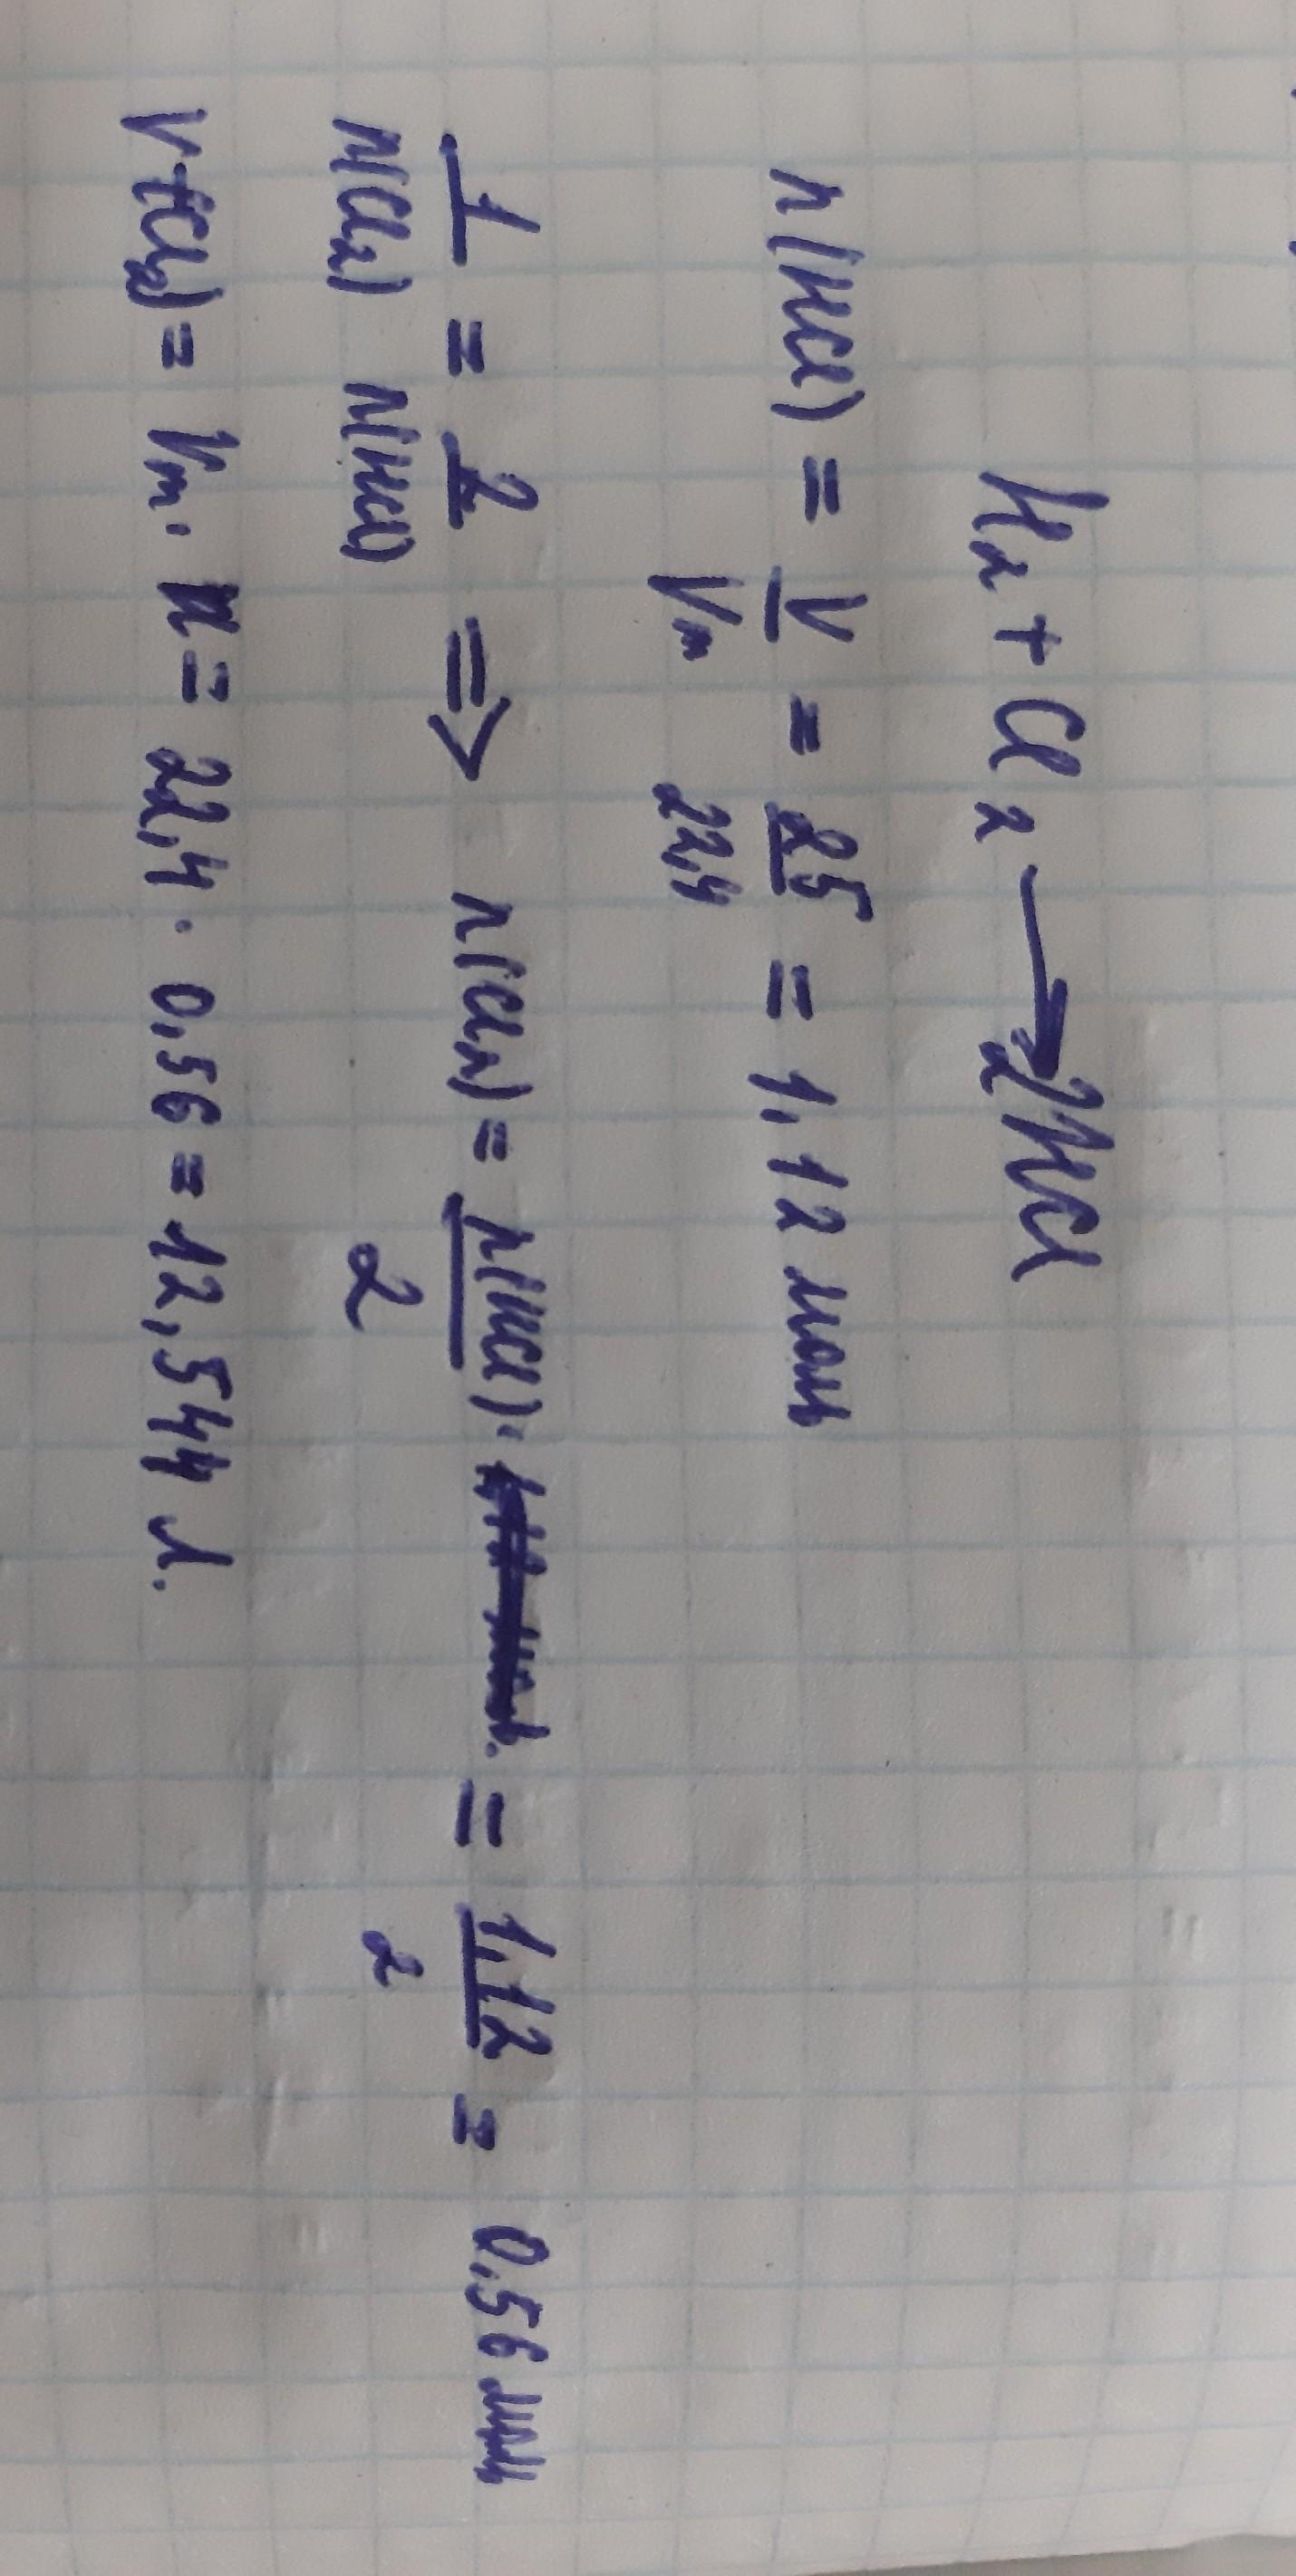 H₂ + Cl₂ → 2HCl
n(HCl) = V/Vm = 25/22,4 = 1,12 моль
1/n(Cl₂) = 2/n(HCl) ⇒ n(Cl₂) = n(HCl)/2 · = 1,12/2 = 0,56 моль
V(Cl₂) = Vm · n = 22,4 · 0,56 = 12,544 л.